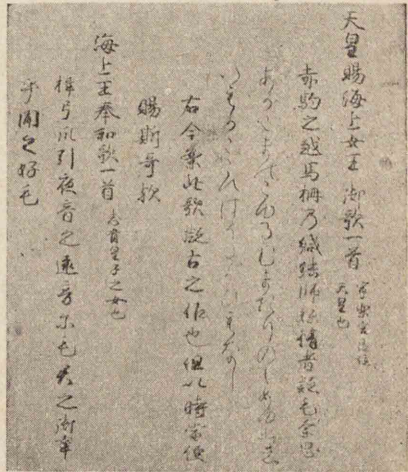 天皇賜海上女王御歌一首 寧樂宮即位
天皇也
赤駒之越馬柵乃緘結師妹情者疑毛奈思
あかこまのこゆるむま のしめゆひし
いもかこゝろはうたかひもなし
右今案此歌擬古之作也但以時當便
賜斯哥歟
海上王奉和歌一首 志貴皇子之女也
梓弓爪引夜音之遠音尓毛君之御幸
乎聞之好毛